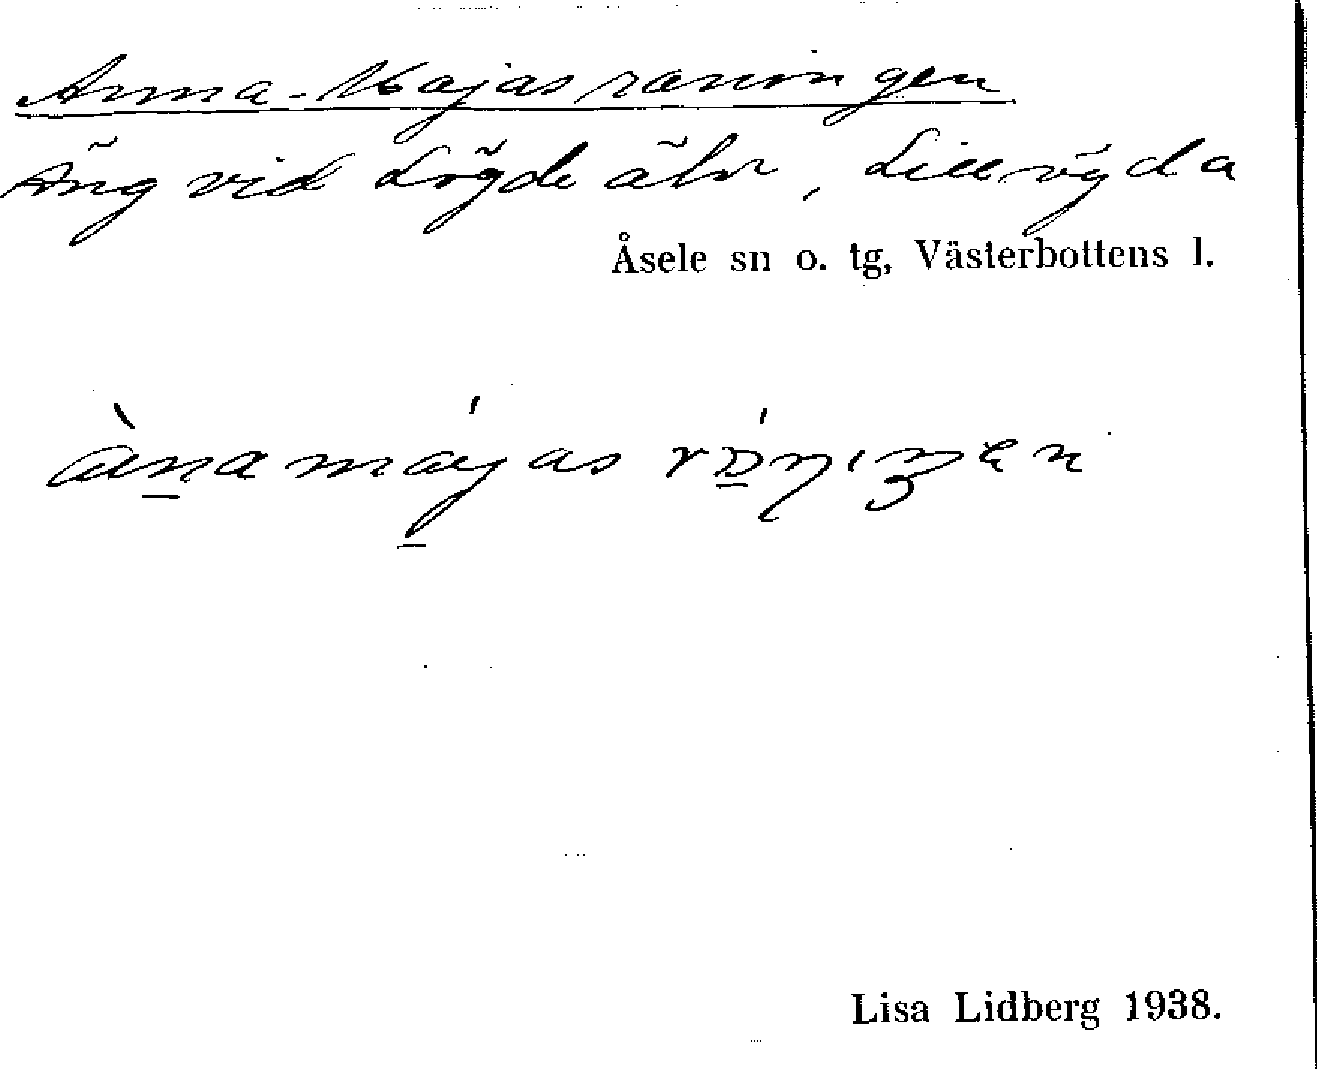 Anna-Majasraningen
Äng vid Lögde älv, Lillögda
Åsele sn o. tg, Västerbottens l.
Lisa Lidberg 1938.